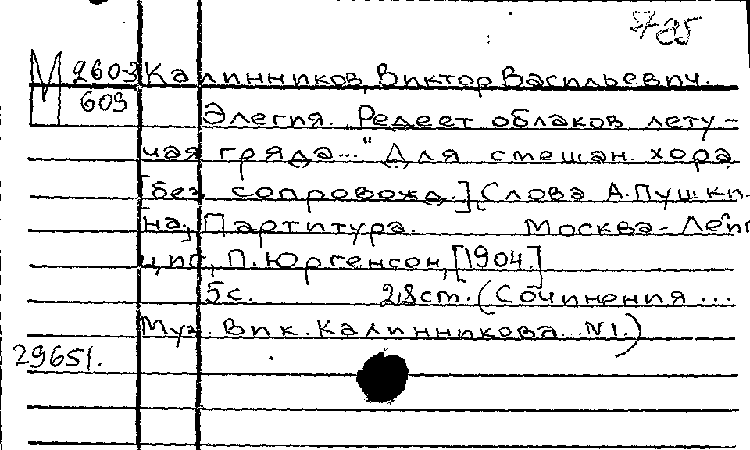 М 260-3 Калинников, Виктор Васильевич.
609
Элегия. „Редеет облаков лету-
чая гряда..." Для смешан. хора
[без сопровожд.] Слова А. Пушки-
на, Партитура. Москва-Лейп
циг, П. Юргенсон, [1904.]
5 с. 28 cm. (Сочинения ...
Муз. Вик. Калинникова. №1.)
29651.